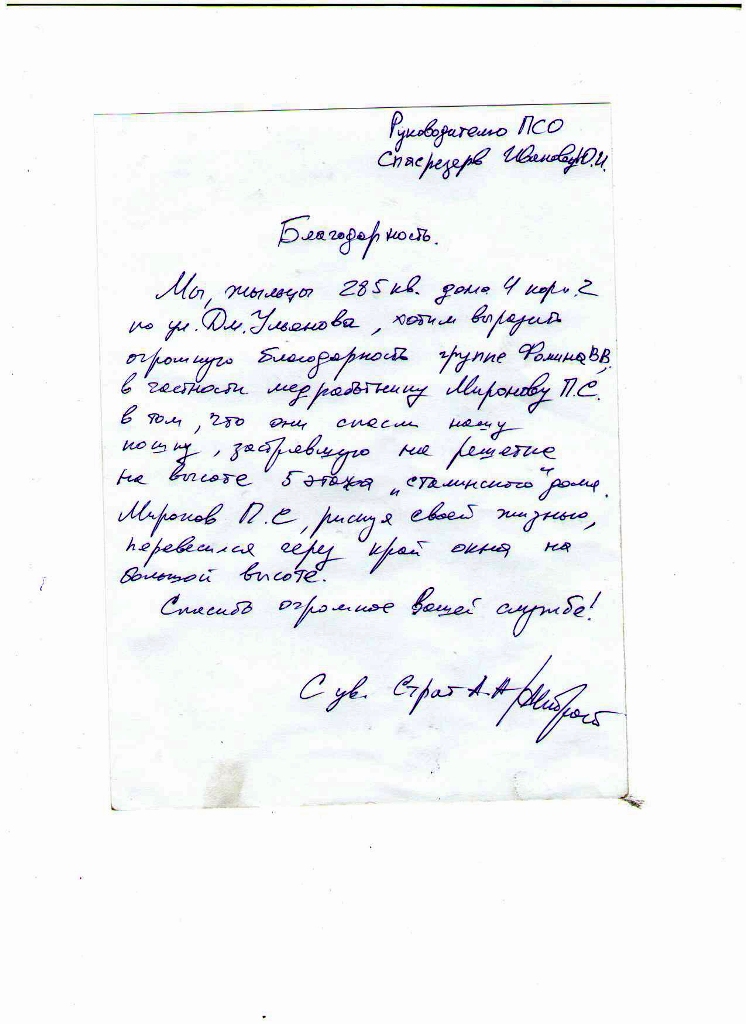 Руководителю ПСО
Спасрезерв Иванову Ю.И.
Благодарность.
Мы, жильцы 285 кв. дома 4 корп. 2
по ул. Дм. Ульянова, хотим выразить
огромную благодарность группе Фомина В.В,
в частности медработнику Миронову П.С.
в том, что они спасли нашу
кошку, застрявшую на решетке
на высоте 5 этажа „сталинского" дома.
Миронов П.С, рискуя своей жизнью,
перевесился через край окна на
большой высоте.
Спасибо огромное Вашей службе!
С ув. Страт А.А